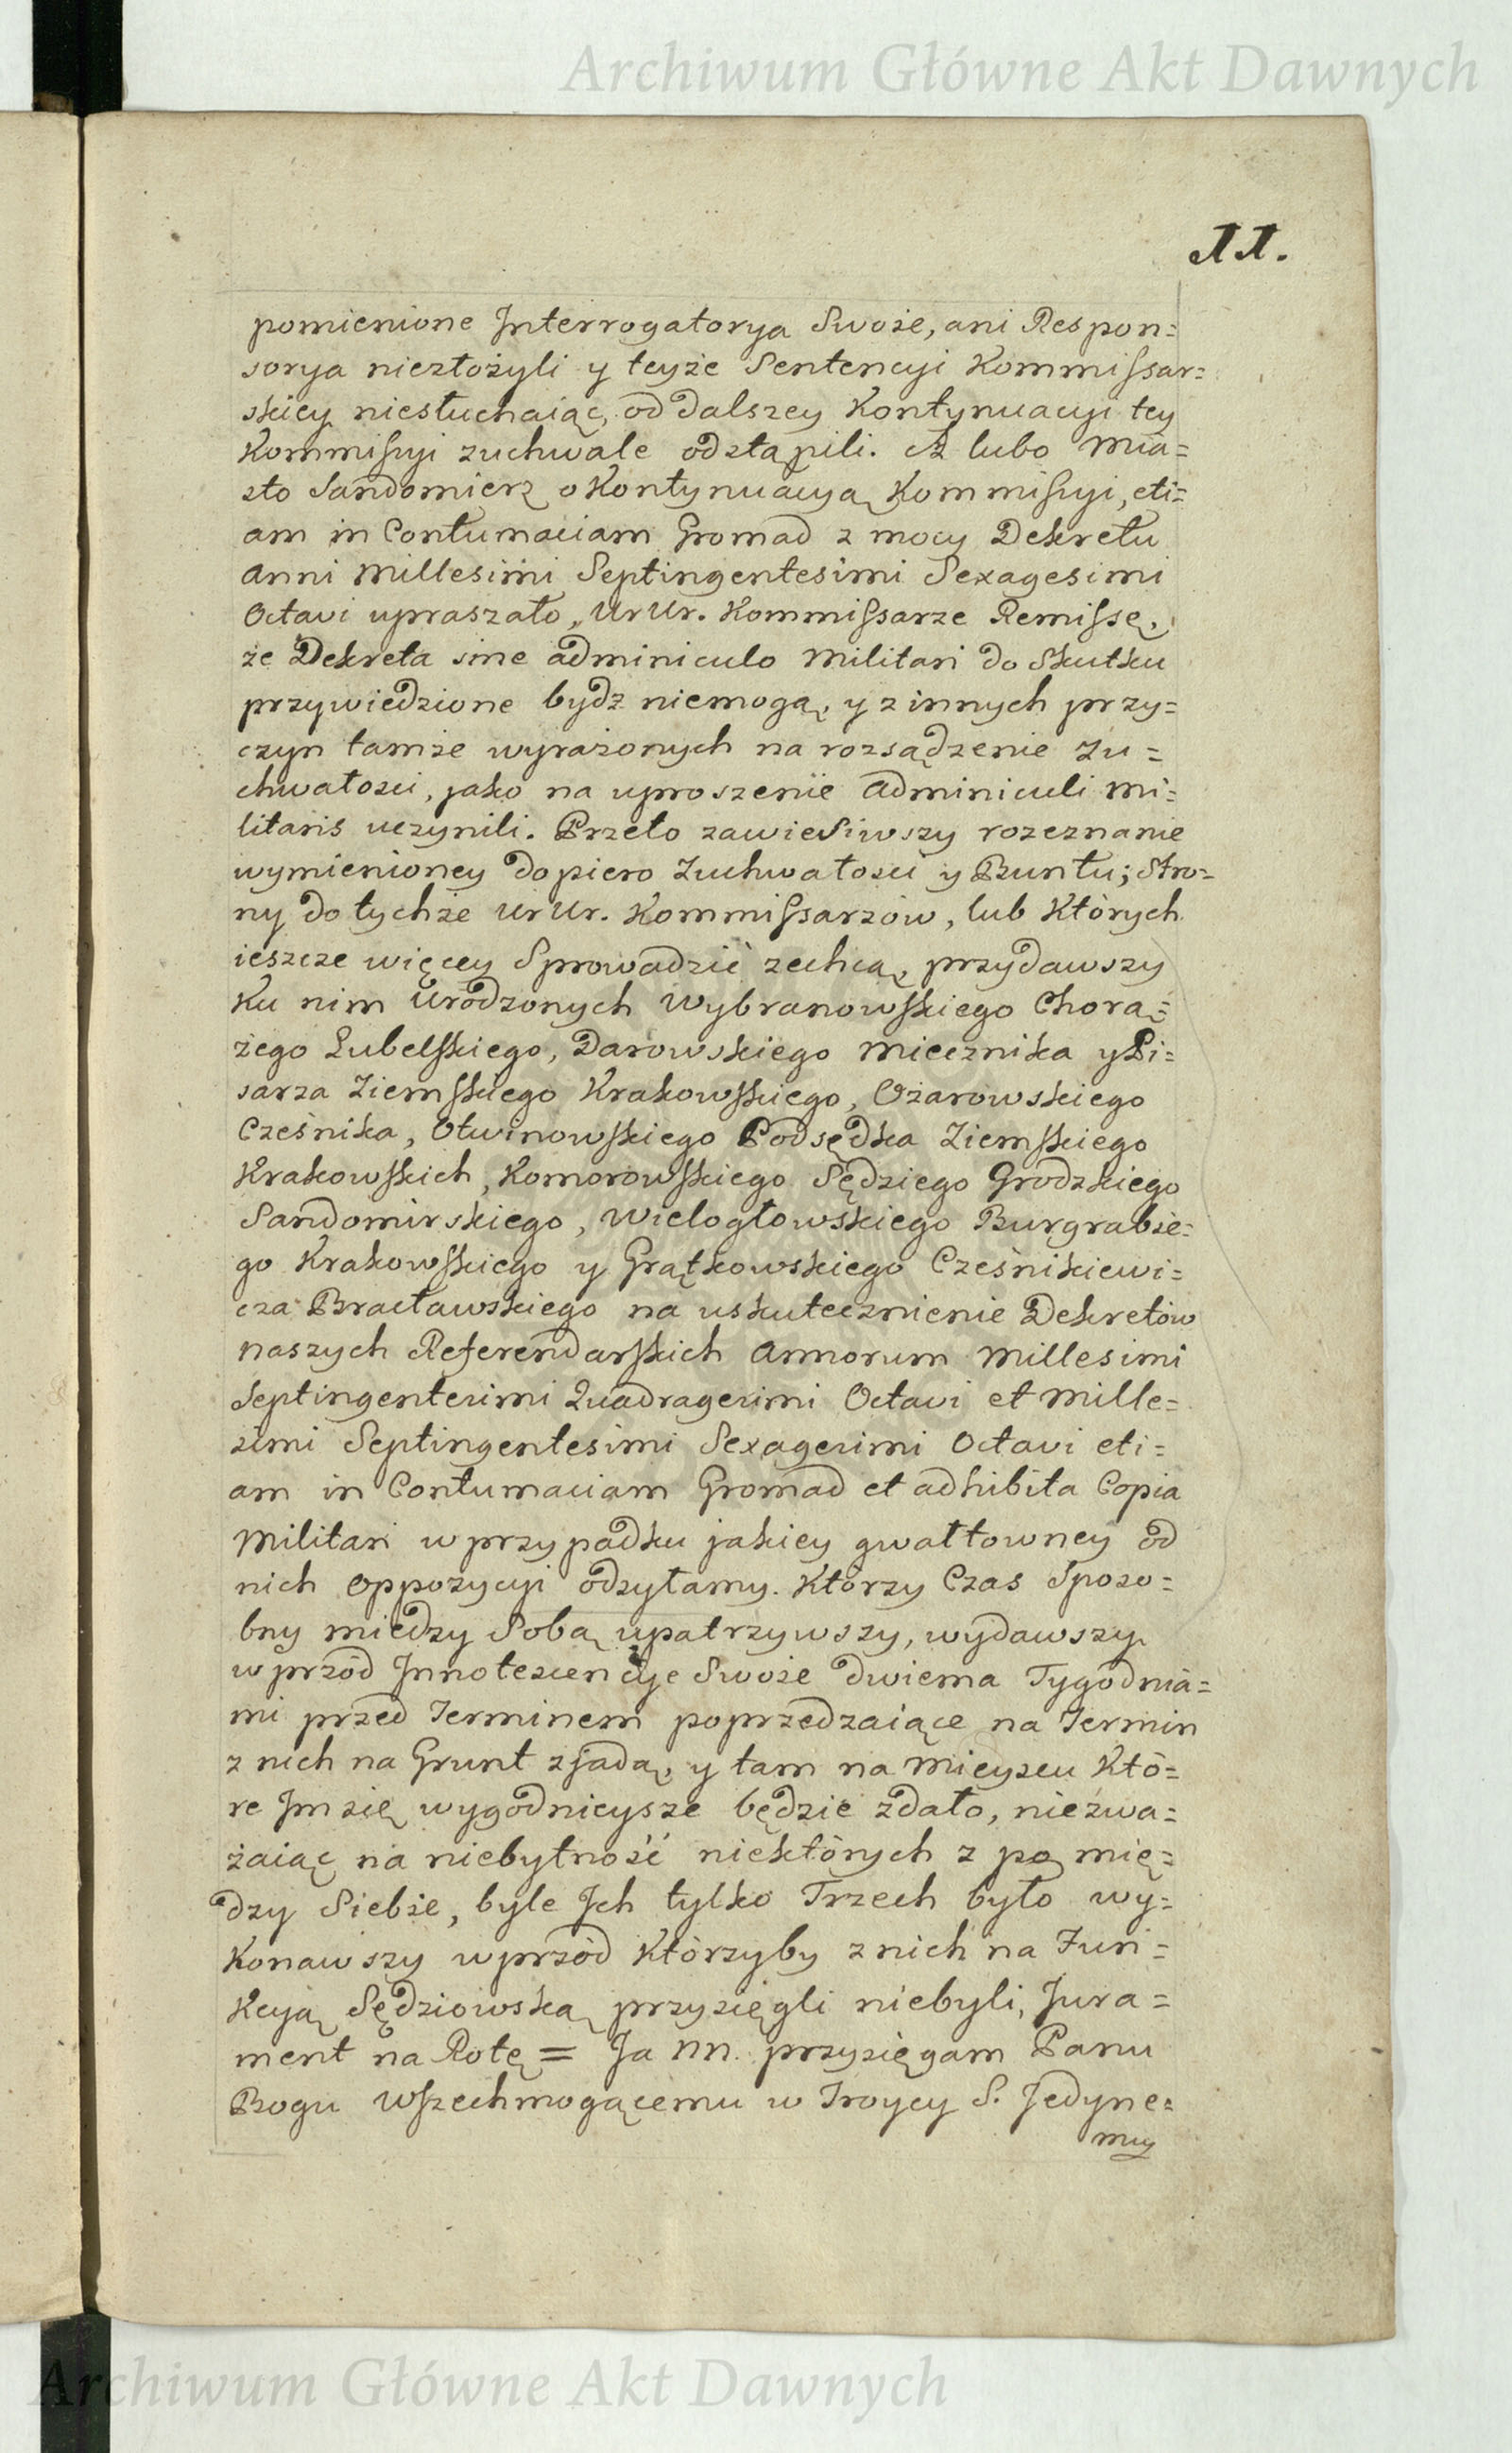 Archiwum Główne Akt Dawnych
11.
pomienione Interrogatorya Swoie, ani Respon=
sorya niezłożyli y teyże Sentencyi Kommissar=
skiey niesłuchaiąc, od dalszey Kontynuacyi tey
Kommisyi zuchwale odstąpili. A lubo Mia=
sto Sandomierz o Kontynuacyą Kommisyi, eti=
am in Contumaciam Gromad z mocy Dekretu
Anni Millesimi Septingentesimi Sexagesimi
Octavi upraszało, Ur Ur. Kommissarze Remissę,
że Dekreta sine adminiculo Militari do Skutku
przywiedzione bydz niemogą, y z innych przy=
czyn tamże wyrażonych na rozsądzenie Zu=
chwałości, jako na uproszenie Adminiculi Mi=
litaris uczynili. Przeto zawiesiwszy rozeznanie
wymienioney dopiero Zuchwałości y Buntu; Stro=
ny do tychże Ur Ur. Kommissarzów, lub Których
ieszcze więcey Sprowadzić zechcą, przydawszy
Ku nim Urodzonych Wybranowskiego Chorą=
żego Lubelskiego, Darowskiego Miecznika y Pi=
sarza Ziemskiego Krakowskiego, Ożarowskiego
Cześnika, Otwinowskiego Podsędka Ziemskiego
Krakowskich, Komorowskiego Sędziego Grodzkiego
Sandomirskiego, Wielogłowskiego Burgrabie=
go Krakowskiego y Grątkowskiego Cześnikiewi=
cza Bracławskiego na uskutecznienie Dekretów
naszych Referendarskich Annorum Millesimi
Septingentesimi Quadragesimi Octavi et Mille=
simi Septingentesimi Sexagesimi Octavi eti=
am in Contumaciam Gromad et adhibita Copia
Militari w przypadku jakiey gwałtowney od
nich Oppozycyi odsyłamy. Którzy Czas Sposo=
bny między Sobą upatrzywszy, wydawszy
wprzód Innotescencye Swoie dwiema Tygodnia=
mi przed Terminem poprzedzaiące na Termin
z nich na Grunt zjadą, y tam na Mieyscu Któ=
re Im się wygodnieysze będzie zdało, niezwa=
żaiąc na niebytność niektórych z pomię=
dzy Siebie, byle Ich tylko Trzech było wy=
Konawszy wprzód Którzyby z nich na Fun=
Kcyą Sędziowską przysięgli niebyli, Jura=
ment na Rotę = Ja NN. przysięgam Panu
Bogu Wszechmogącemu w Troycy S. Jedyne=
mu
Archiwum Główne Akt Dawnych